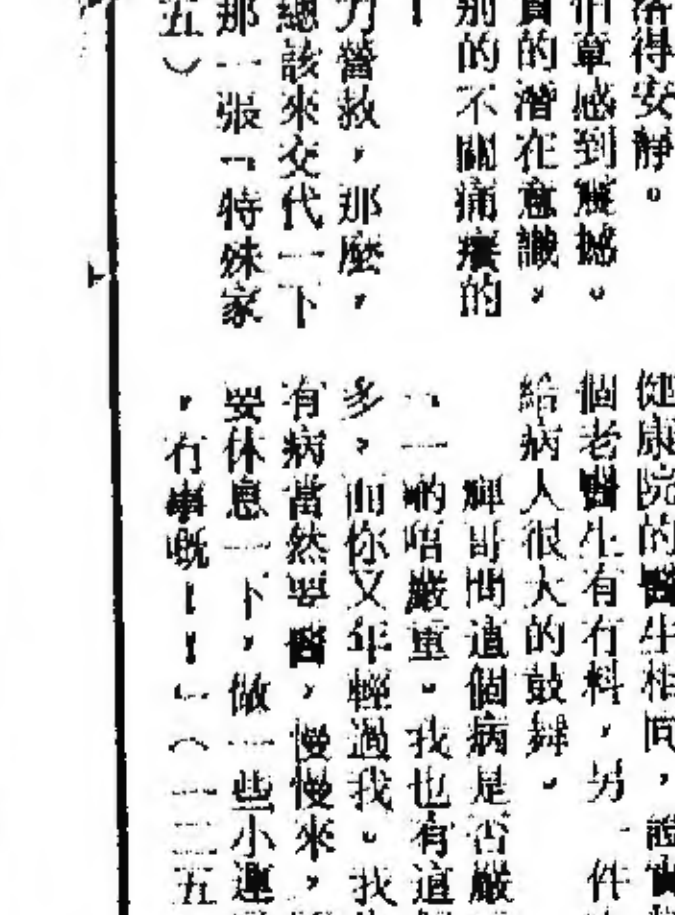 落得安靜。
伯韋感到遺憾。
的潛在意識，
別的不關痛癢的
力營救，那麼，
總該來交代一下
那一張「特殊家
五）
健康院的醫生相同，證實
個老醫生有冇料，另一件
給病人很大的鼓舞。
輝哥問這個病是否嚴
「一啲唔嚴重。我也有這
多，而你又年輕過我。我
有病當然要醫，慢慢來，
要休息一下，做一些小運
，冇事嘅！！」（一三五